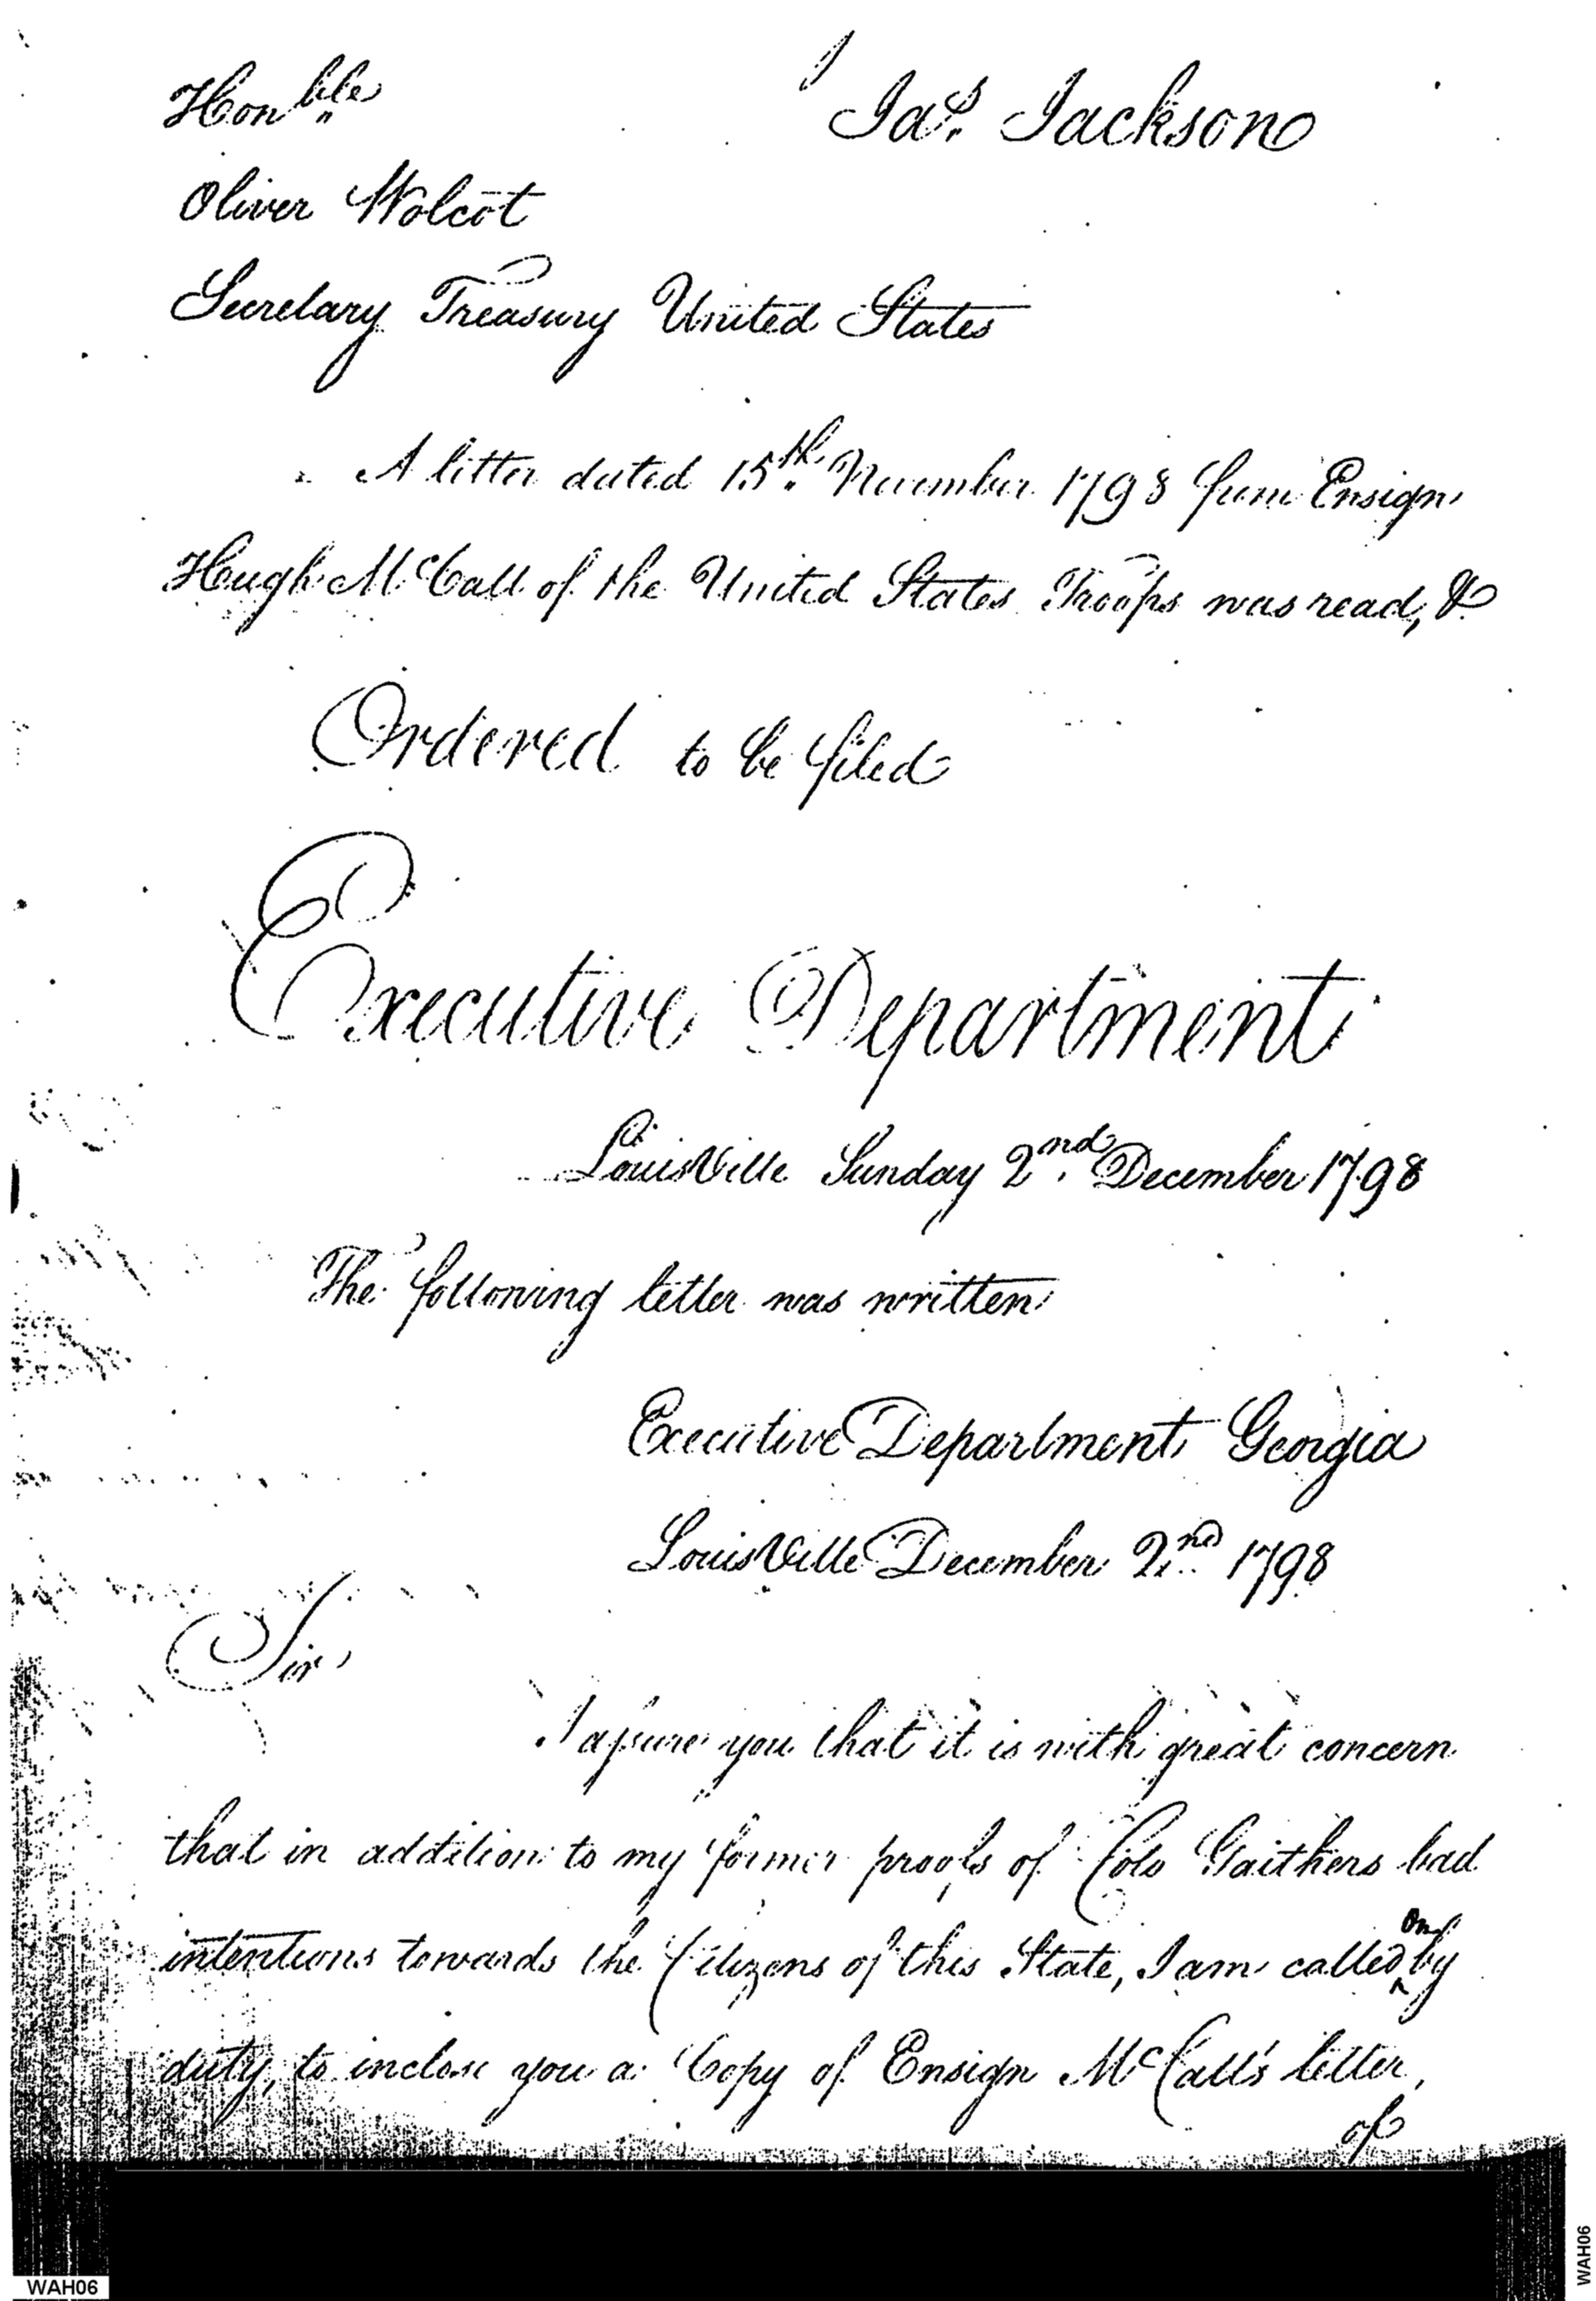 Honble Jas. Jackson
Oliver Wolcot
Secretary Treasury United States
A letter dated 15th. November 1798 from Ensign
Hugh McCall of the United States Troops was read, &
Ordered to be filed
Executive Department
LouisVille Sunday 2nd. December 1798
The following letter was written
Executive Department Georgia
LouisVille December 2nd 1798
Sir
I assure you that it is with great concern
that in addition to my former proofs of Colo Gaithers bad
intentions towards the Citizens of this State, I am called on by
duty, to inclose you a Copy of Ensign McCall's letter,
of
WAH06
WAH06